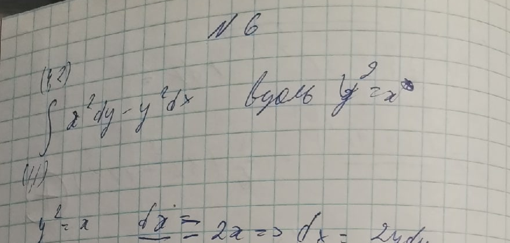 N 6
(4,2)
∫ x²dy - y²dx вдоль y² = x
(1,1)
y² = x dx = 2x => dx = 2ydy